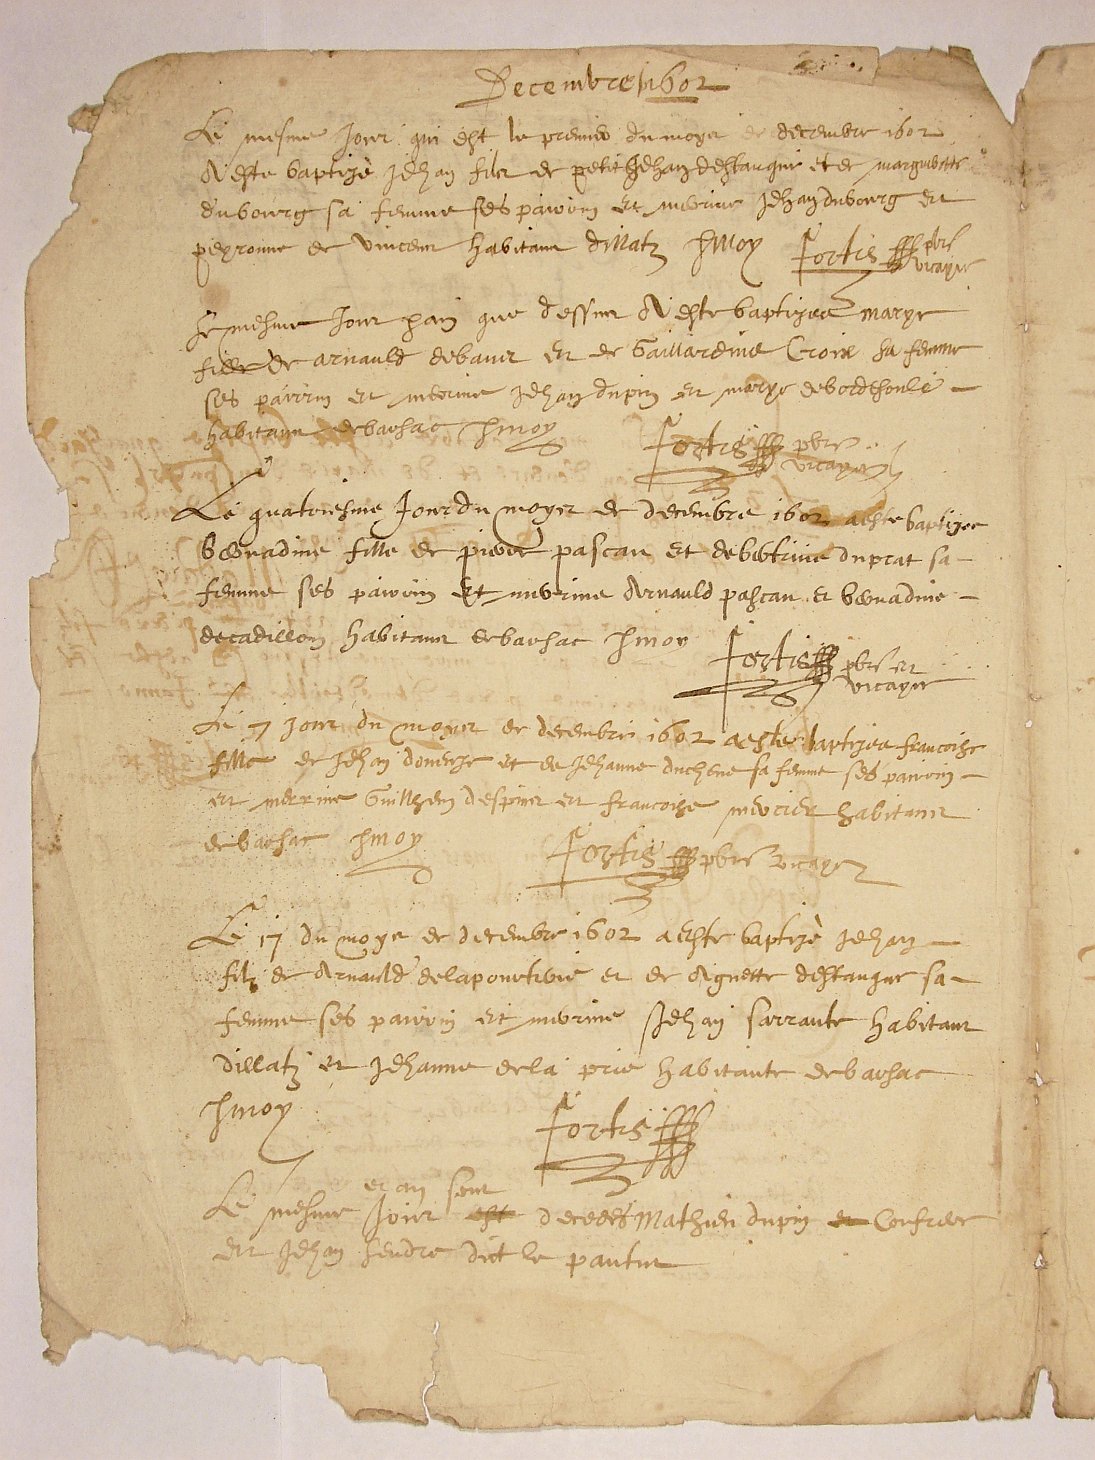 Decembre 1602
Le mesme Jour qui est le premier du moys de decembre 1602
A este baptizé Jehan filz de petit Jehan destanque et de marguerite
dubourg sa femme ses parrin et merrine Jehan dubourg et
peyronne de Vincens habitans dillatz p moy Fortis pbre
vicayre
Le mesme Jour et an que dessus A este baptizee marye
fille de arnauld debaur et de Gaillardine Croix sa femme
ses parrin et merrine Jehan dupin et marye debordesoule
habitans debarsac p moy Fortis pbre
vicayre
Le quatriesme Jour du moys de decembre 1602 a este baptizee
bernadine fille de pierre pascau et de duprat sa
femme ses parrin et merrine Arnauld pascau et bernadine
decadillon habitans debarsac p moy Fortis pbre et
vicayre
Le 7 jour du moys de decembre 1602 a este baptizee francoise
fille de Jehan donerze et de Jehanne duchene sa femme ses parrin
et merrine Guilhem despins et francoise mercier habitans
debarsac p moy Fortis pbre vicayre
Le 17 du moys de decembre 1602 a este baptizé Jehan
filz de Arnauld delapourterie et de Agnette destanque sa
femme ses parrin et merrine Jehan sarraute habitant
dillatz et Jehanne dela prie habitante debarsac
p moy Fortis
et an sont
Le mesme Jour est decedes Mathieu dupin et Confrere
et Jehan dict le pautut